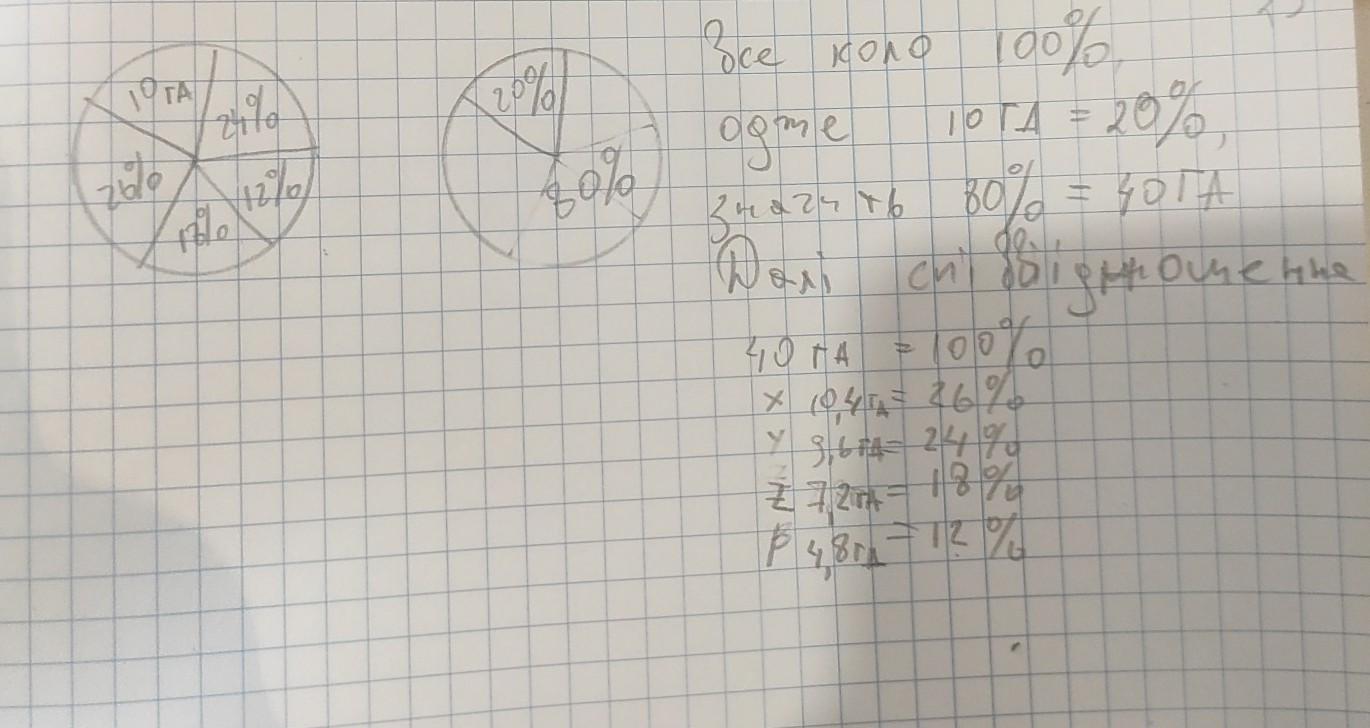 10 гА
24%
26%
12%
18%
20%
80%
Все коло 100%,
отже 10 ГА = 20%,
значить 80% = 40 ГА
Далі співвідношення
40 гА = 100%
x 10,4 гА = 26%
y 9,6 гА = 24%
z 7,2 гА = 18%
p 4,8 гА = 12%